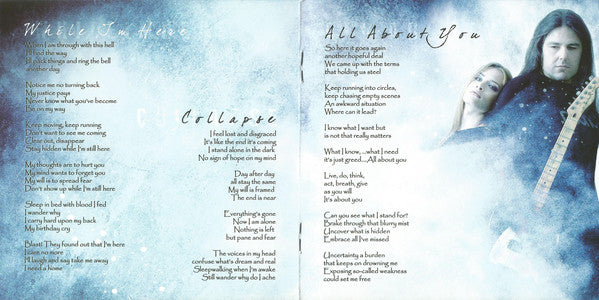 While I'm Here
When I am through with this hell
I'll find the way
I'll pack things and ring the bell
another day
Notice me no turning back
My justice pays
Never know what you've become
Be on my way
Keep moving, keep running
Don't want to see me coming
Clear out, disappear
Stay hidden while I'm still here
My thoughts are to hurt you
My mind wants to forget you
My will is to spread fear
Don't show up while I'm still here
Sleep in bed with blood I fed
I wander why
I carry hard upon my back
My birthday cry
Blast! They found out that I'm here
I care no more
I'll laugh and say take me away
I need a home
Collapse
I feel lost and disgraced
It's like the end it's coming
I stand alone in the dark
No sign of hope on my mind
Day after day
all stay the same
My will is framed
The end is near
Everything's gone
Now I am alone
Nothing is left
but pane and fear
The voices in my head
confuse what's dream and real
Sleepwalking when I'm awake
Still wander why do I ache
All About You
So here it goes again
another hopeful deal
We came up with the terms
that holding us steel
Keep running into circles,
keep chasing empty scenes
An awkward situation
Where can it lead?
I know what I want but
is not that really matters
What I know, ...what I need
it's just greed....All about you
Live, do, think,
act, breath, give
as you will
It's about you
Can you see what I stand for?
Brake through that blurry mist
Uncover what is hidden
Embrace all I've missed
Uncertainty a burden
that keeps on drowning me
Exposing so-called weakness
could set me free